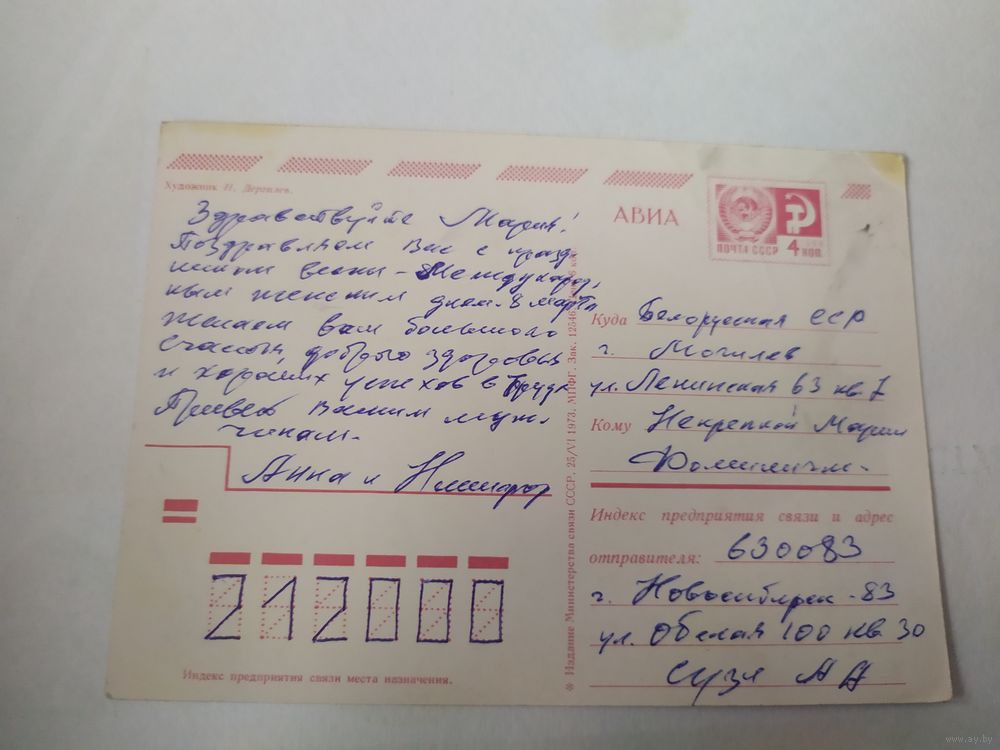 Художник Н. Дергилев.
АВИА
ПОЧТА СССР 4 КОП.
Здравствуйте Мария!
Поздравляем Вас с празд
ником весны - Международ,
ным женским днём 8 марта
желаем вам большого
счастья, доброго здоровья
и хороших успехов в труде
Привет Вашим муж-
чинам.
Анна и
Куда Белорусская ССР
г. Могилев
ул. Ленинская 63 кв. 7
Кому Некрепкой Марии
Индекс предприятия связи и адрес
отправителя: 630083
г. Новосибирск - 83
ул. 100 кв 30
А А
212000
Индекс предприятия связи места назначения.
* Издание Министерства связи СССР. 25/VI 1973. МПФГ. Зак.
www.ay.by